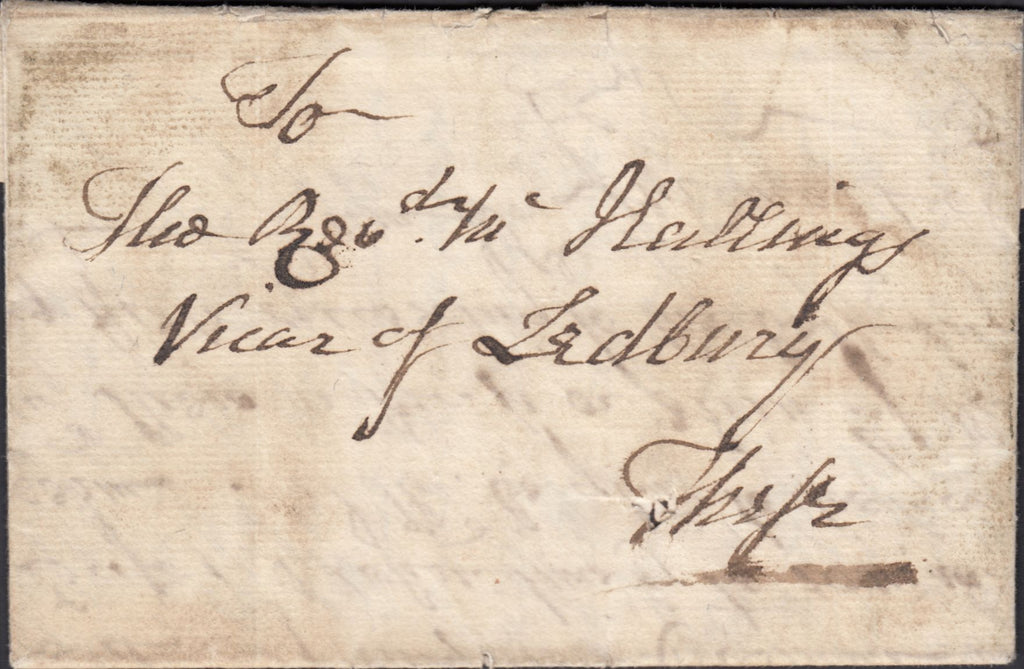 To
The Revd. Mr Hastings
Vicar of Ledbury
These